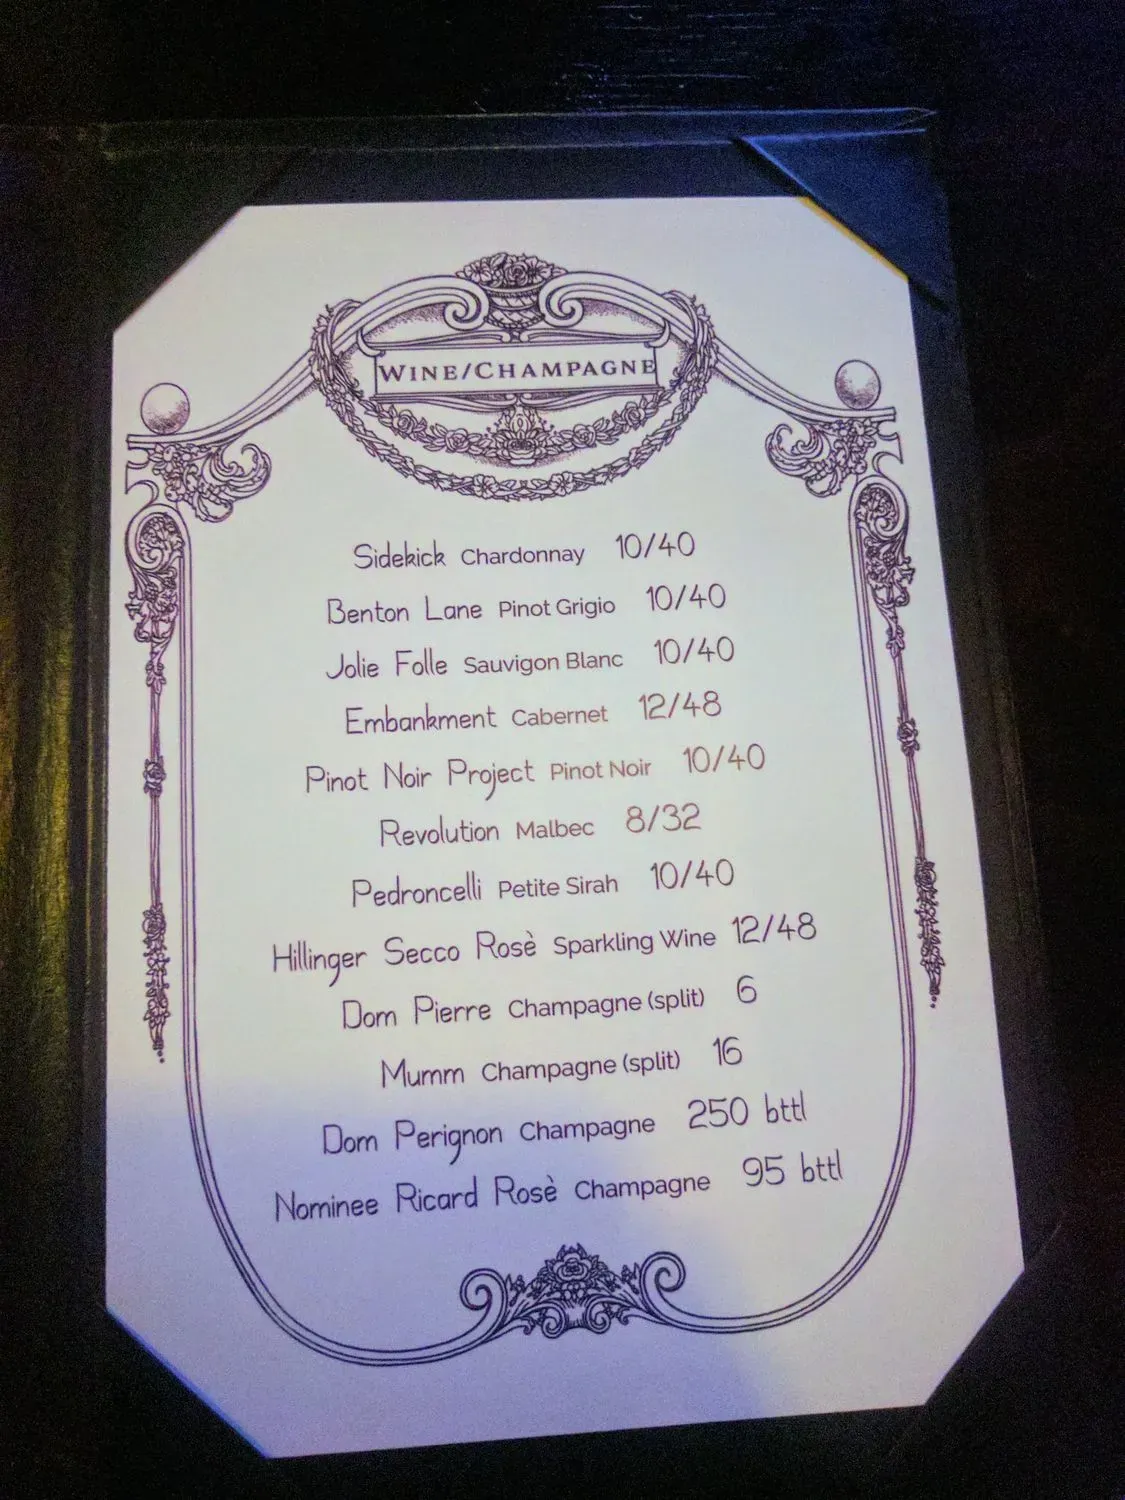 WINE/CHAMPAGNE
Sidekick Chardonnay 10/40
Benton Lane Pinot Grigio 10/40
Jolie Folle Sauvigon Blanc 10/40
Embankment Cabernet 12/48
Pinot Noir Project Pinot Noir 10/40
Revolution Malbec 8/32
Pedroncelli Petite Sirah 10/40
Hillinger Secco Rosè Sparkling Wine 12/48
Dom Pierre Champagne (split) 6
Mumm Champagne (split) 16
Dom Perignon Champagne 250 bttl
Nominee Ricard Rosè Champagne 95 bttl